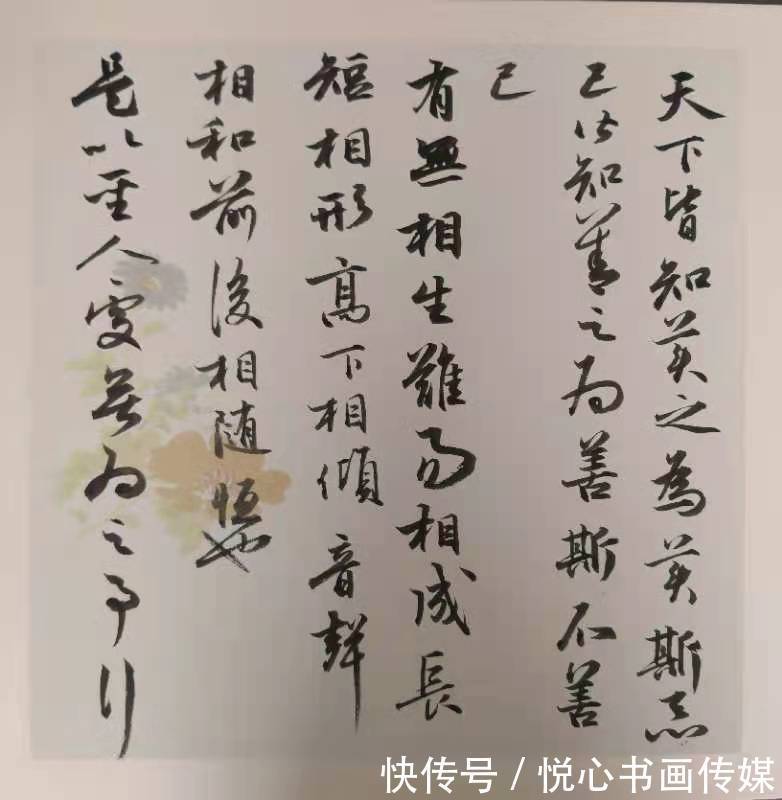 天下皆知美之為美斯惡
已皆知善之為善斯不善
已
有無相生難易相成長
短相形高下相傾音聲
相和前後相随恒也
是以聖人處無為之事行
快传号/悦心书画传媒